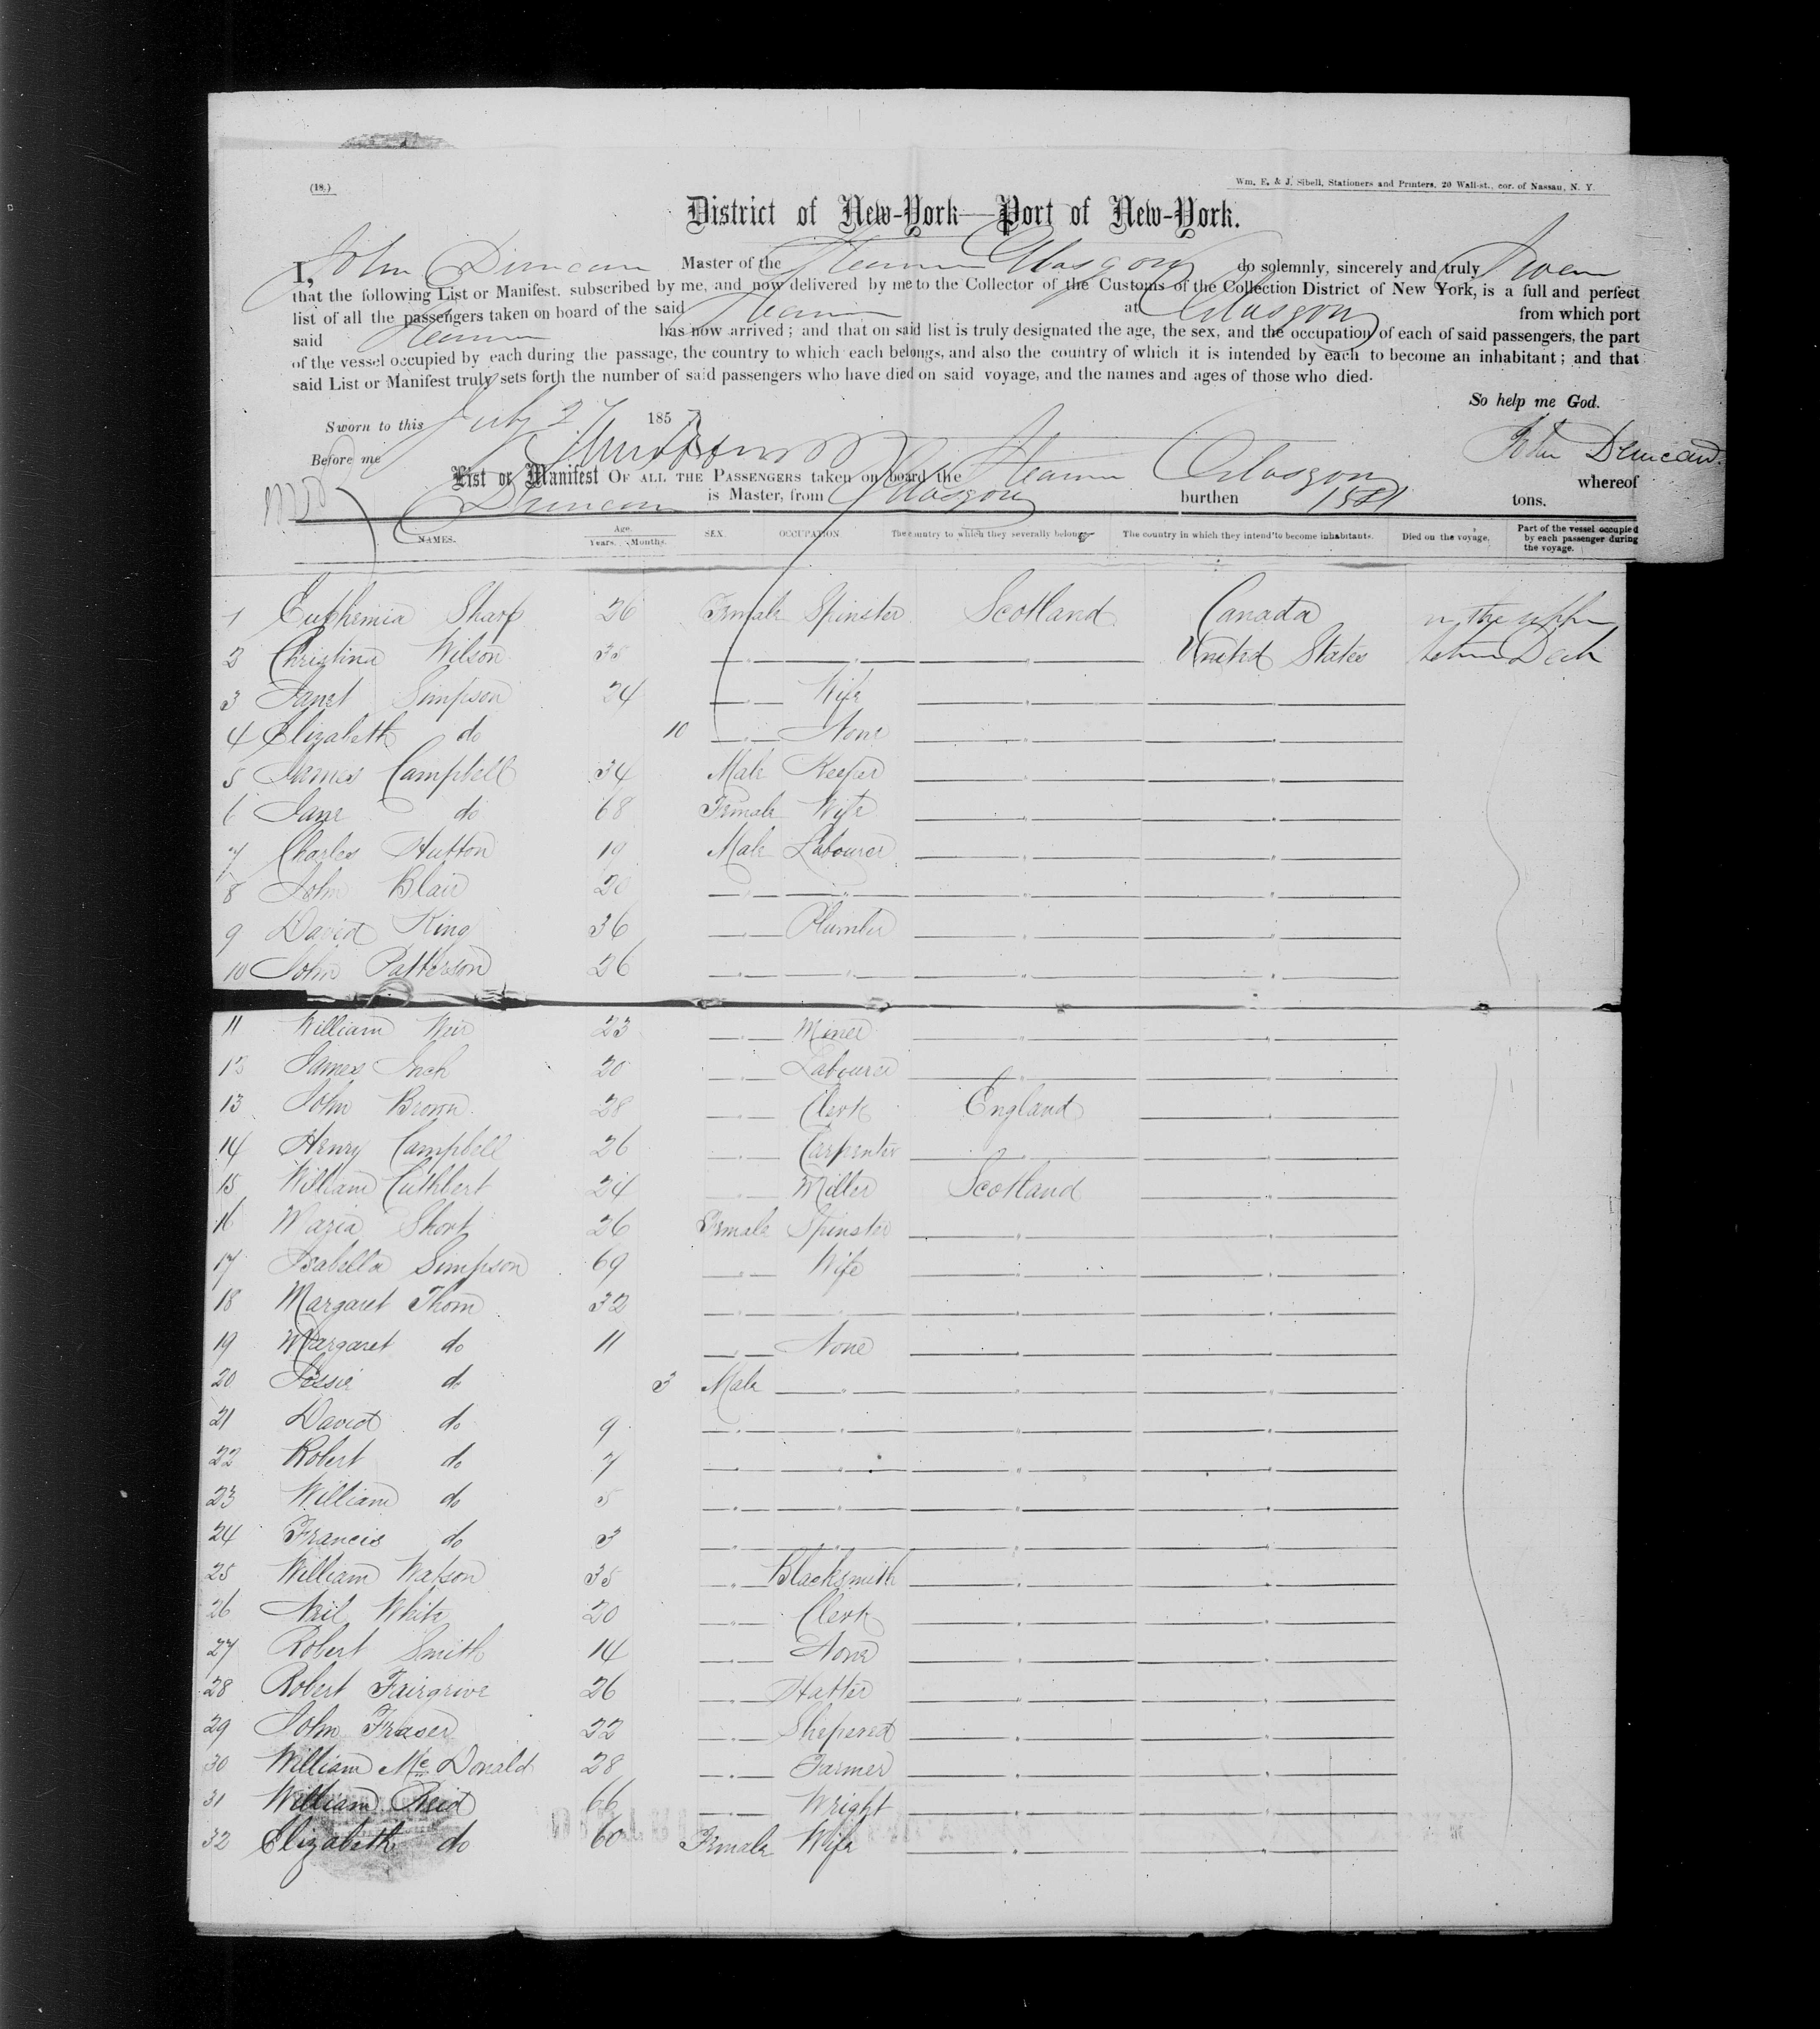 (18.)
Wm. E. & J. Sibell, Stationers and Printers, 20 Wall-st., cor. of Nassau, N. Y.
District of New-York—Port of New-York.
I, John Duncan Master of the Steamer Glasgow do solemnly, sincerely and truly Swear
that the following List or Manifest. subscribed by me, and now delivered by me to the Collector of the Customs of the Collection District of New York, is a full and perfect
list of all the passengers taken on board of the said Steamer at Glasgow from which port
said Steamer has now arrived; and that on said list is truly designated the age, the sex, and the occupation of each of said passengers, the part
of the vessel occupied by each during the passage, the country to which each belongs, and also the country of which it is intended by each to become an inhabitant; and that
said List or Manifest truly sets forth the number of said passengers who have died on said voyage, and the names and ages of those who died.
So help me God.
Sworn to this July 27 185
John Duncan
Before me
List or Manifest OF ALL THE PASSENGERS taken on board the Steamer Glasgow whereof
Duncan is Master, from Glasgow burthen tons.
NAMES. Age. Years. Months. SEX. OCCUPATION The country to which they severally belong The country in which they intend to become inhabitants. Died on the voyage. Part of the vessel occupied by each passenger during the voyage.
1 Euphemia Sharp 26 Female Spinster Scotland Canada in the upper
2 Christina Wilson 35 — " — — " — — " — United States between Deck
3 Janet Simpson 24 — " — Wife — " — — " —
4 Elizabeth do 10 — " — None — " — — " —
5 James Campbell 34 Male Keeper — " — — " —
6 Jane do 68 Female Wife — " — — " —
7 Charles Hutton 19 Male Labourer — " — — " —
8 John Blair 20 — " — — " — — " — — " —
9 David King 36 — " — Plumber — " — — " —
10 John Patterson 26 — " — — " — — " — — " —
11 William Weir 23 — " — Miner — " — — " —
12 James Inch 20 — " — Labourer — " — — " —
13 John Brown 28 — " — Clerk England — " —
14 Henry Campbell 26 — " — Carpenter — " — — " —
15 William Cuthbert 24 — " — Miller Scotland — " —
16 Maria Short 26 Female Spinster — " — — " —
17 Isabella Simpson 69 — " — Wife — " — — " —
18 Margaret Thom 32 — " — — " — — " — — " —
19 Margaret do 11 — " — None — " — — " —
20 Jessie do 3 Male — " — — " — — " —
21 David do 9 — " — — " — — " — — " —
22 Robert do 7 — " — — " — — " — — " —
23 William do 5 — " — — " — — " — — " —
24 Francis do 3 — " — — " — — " — — " —
25 William Watson 35 — " — Blacksmith — " — — " —
26 Neil White 20 — " — Clerk — " — — " —
27 Robert Smith 14 — " — None — " — — " —
28 Robert Fairgrive 26 — " — Hatter — " — — " —
29 John Fraser 22 — " — Shepered — " — — " —
30 William Mc Donald 28 — " — Farmer — " — — " —
31 William Reid 66 — " — Wright — " — — " —
32 Elizabeth do 60 Female Wife — " — — " —